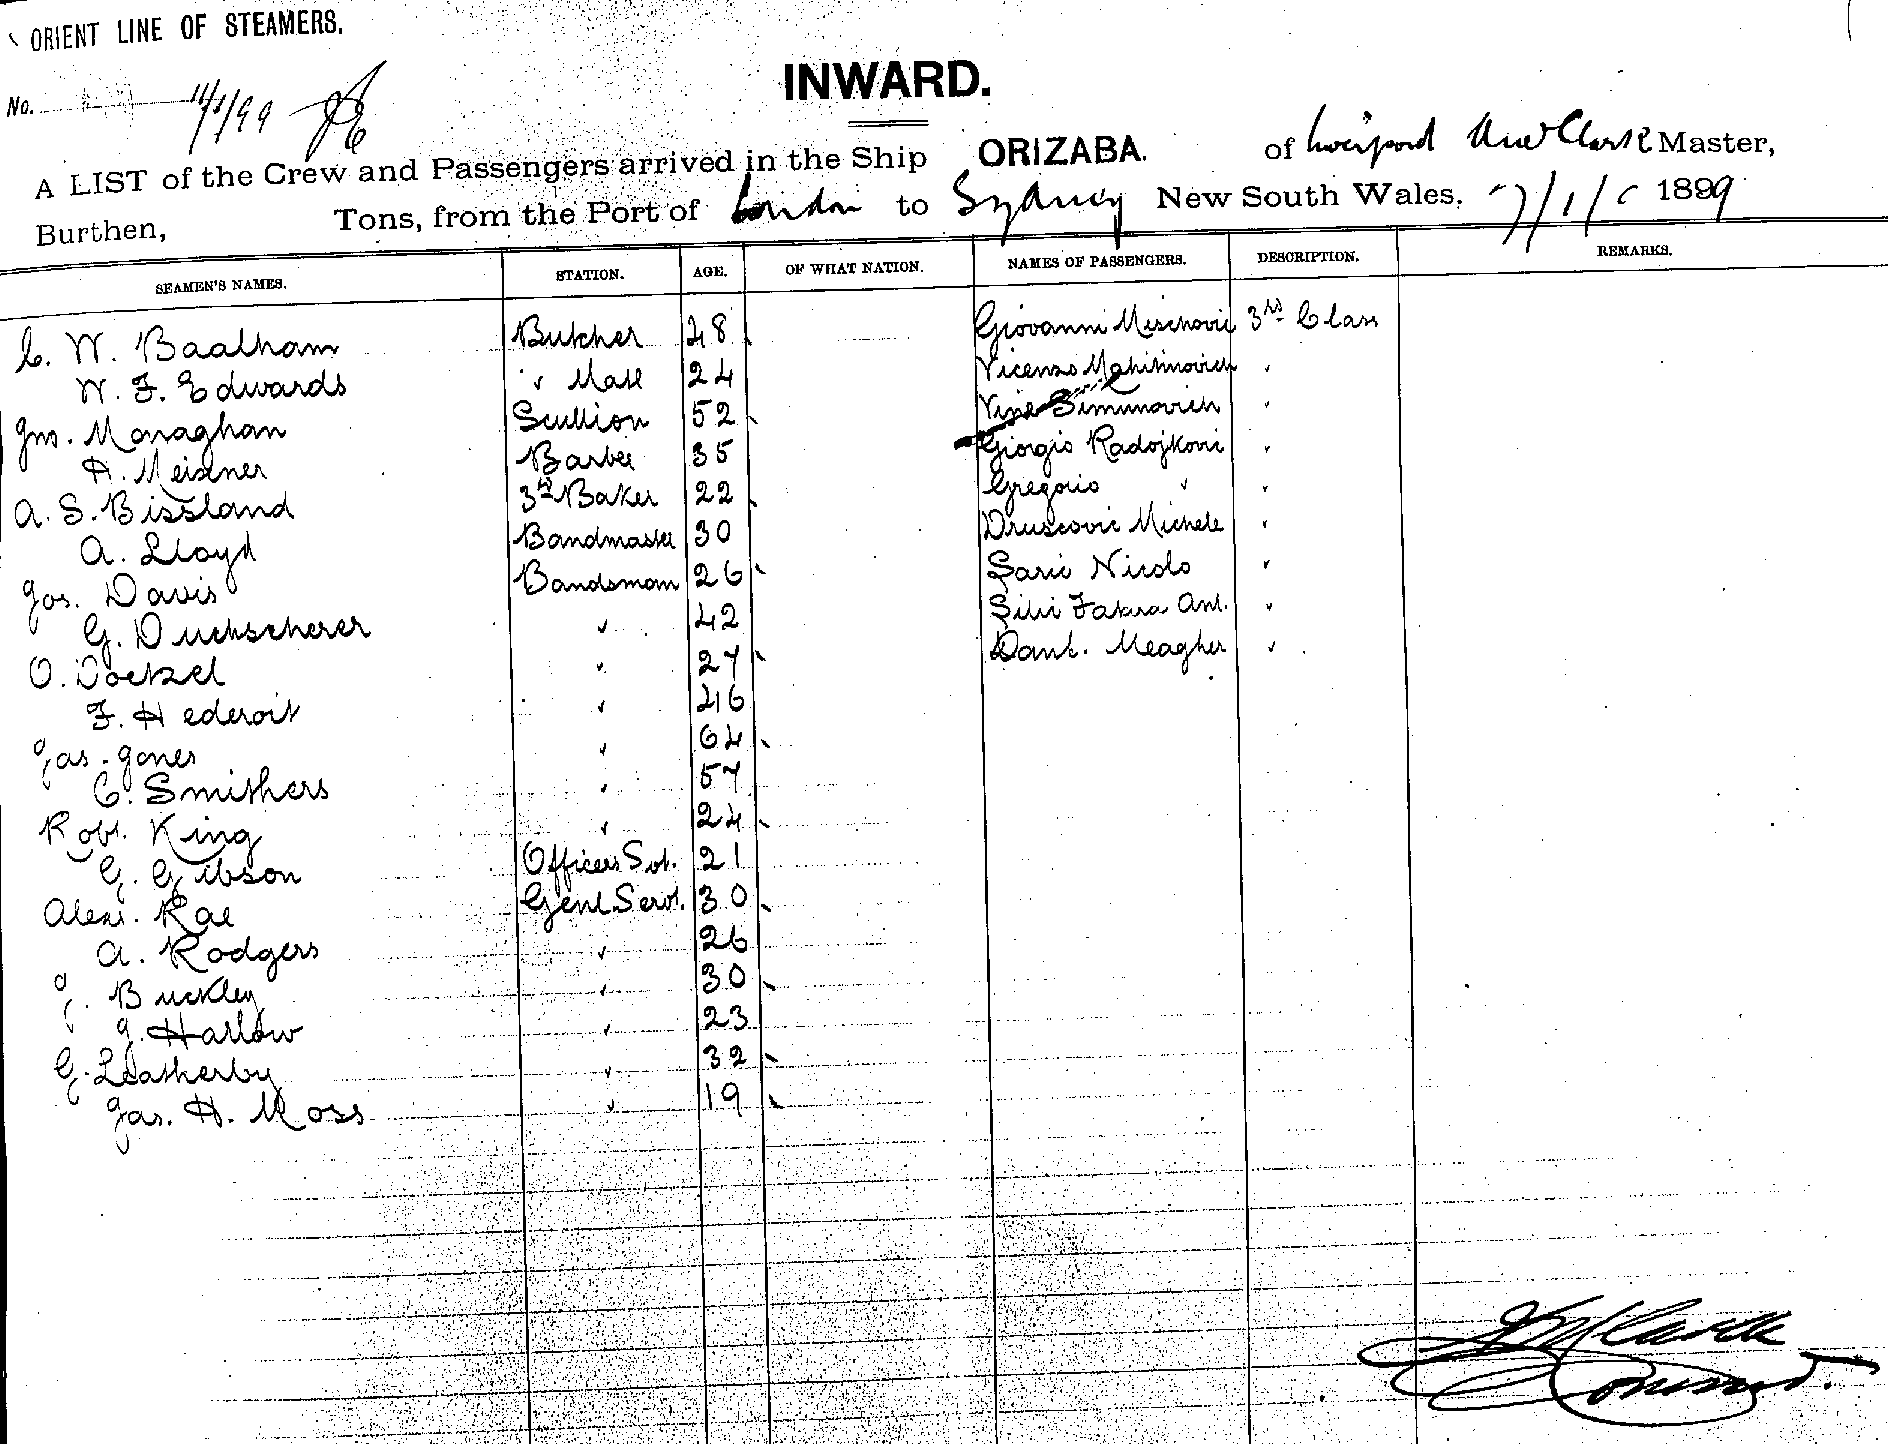 ORIENT LINE OF STEAMERS.
INWARD.
No. 11/1/99
A LIST of the Crew and Passengers arrived in the Ship ORIZABA. of Liverpool Clark Master,
Burthen, Tons, from the Port of London to Sydney New South Wales, 7/1/ 1899
SEAMEN'S NAMES. STATION. AGE. OF WHAT NATION. NAMES OF PASSENGERS. DESCRIPTION. REMARKS.
C. W. Baalham Butcher 48 Giovanni 3rd Class
W. F. Edwards " Mate 24 Vicenzo "
Jno. Monaghan Scullion 52 Simunovich "
H. Meisner Barber 35 Giorgio Radojkovic "
A. S. Bissland 3rd Baker 22 Gregorio " "
A. Lloyd Bandmaster 30 Druscovic Michele "
Jas. Davis Bandsman 26 Saric Nicolo "
G. Duchscherer " 42 Ant. "
O. Doetzel " 27 Danl. Meagher "
F. Hederoit " 46
Jas. Jones " 64
C. Smithers " 57
Robt. King " 24
G. Gibson Officers Svt. 21
Alexr. Rae Genl. Servt. 30
A. Rodgers " 26
J. Buckley " 30
J. Harlow " 23
G. Leatherby " 32
Jas. H. Moss " 19
Clark
Command.